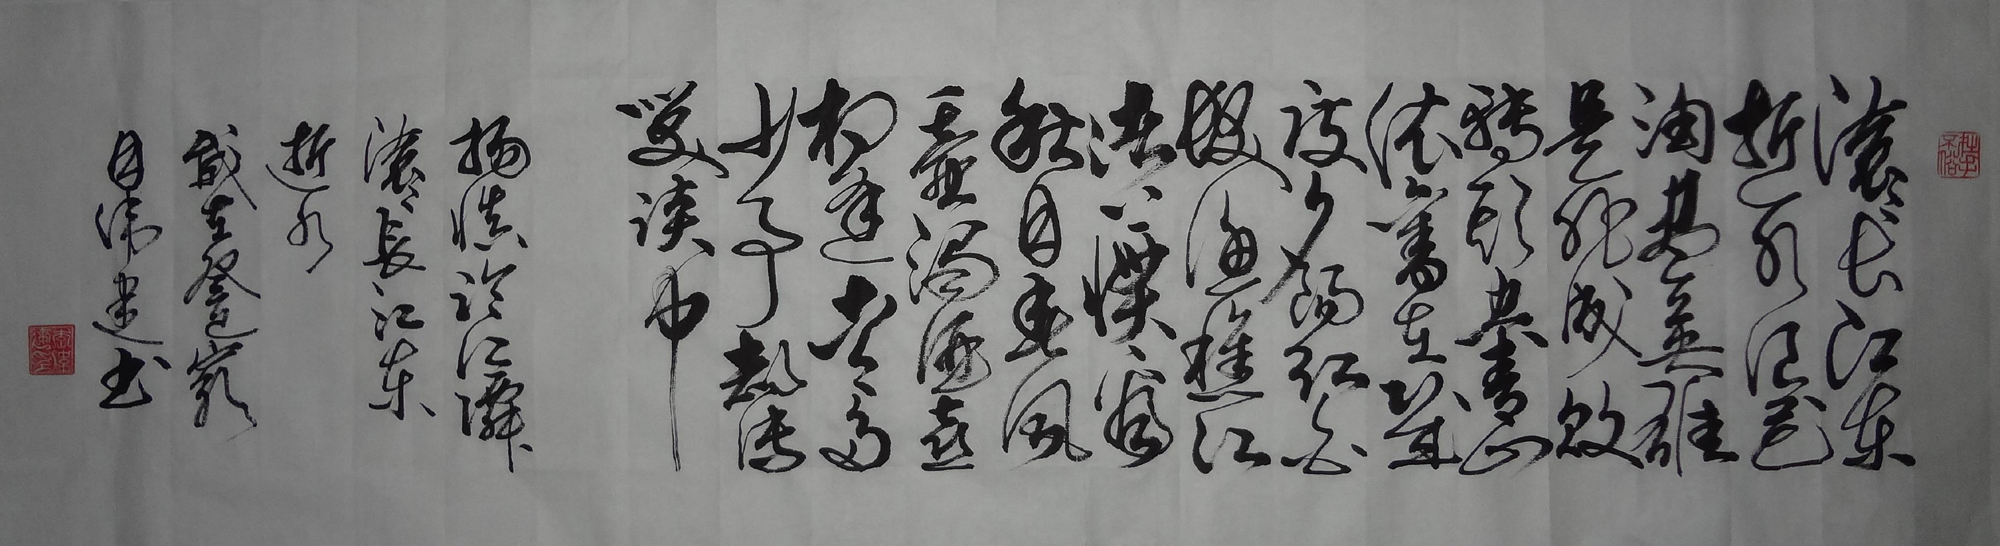 滚滚长江东
逝水浪花
淘尽英雄
是非成败
转头空青山
依旧在几
度夕阳红白
发渔樵江
渚上惯看
秋月春风
一壶浊酒喜
相逢古今多
少事都付
笑谈中
杨慎临江仙
滚滚长江东
逝水
岁在癸巳
月 建书